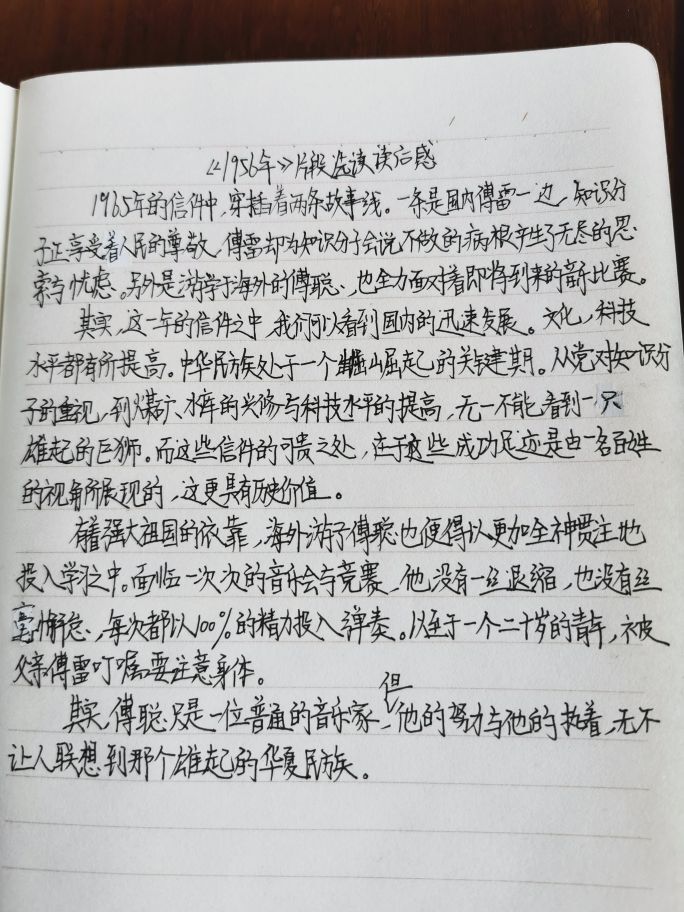 《1956年》片段选读读后感
1965年的信件中，穿插着两条故事线。一条是国内傅雷一边，知识分
子正享受着人民的尊敬，傅雷却为知识分子会说不做的病根产生了无尽的思
索与忧虑。另外是游学于海外的傅聪，也全力面对着即将到来的音乐比赛。
其实，这一年的信件之中，我们可以看到国内的迅速发展。文化，科技
水平都有所提高。中华民族处于一个崛起的关键期。从党对知识分
子的重视，到煤矿、水库的兴修与科技水平的提高，无一不能看到一只
雄起的巨狮。而这些信件的可贵之处，在于这些成功足迹是由一名百姓
的视角所展现的，这更具有历史价值。
有着强大祖国的依靠，海外游子傅聪也便得以更加全神贯注地
投入学习之中。面临一次次的音乐会与竞赛，他没有一丝退缩，也没有丝
毫懈怠，每次都以100%的精力投入弹奏。以至于一个二十岁的青年，被
父亲傅雷叮嘱要注意身体。
其实，傅聪只是一位普通的音乐家，但他的努力与他的执着，无不
让人联想到那个雄起的华夏民族。